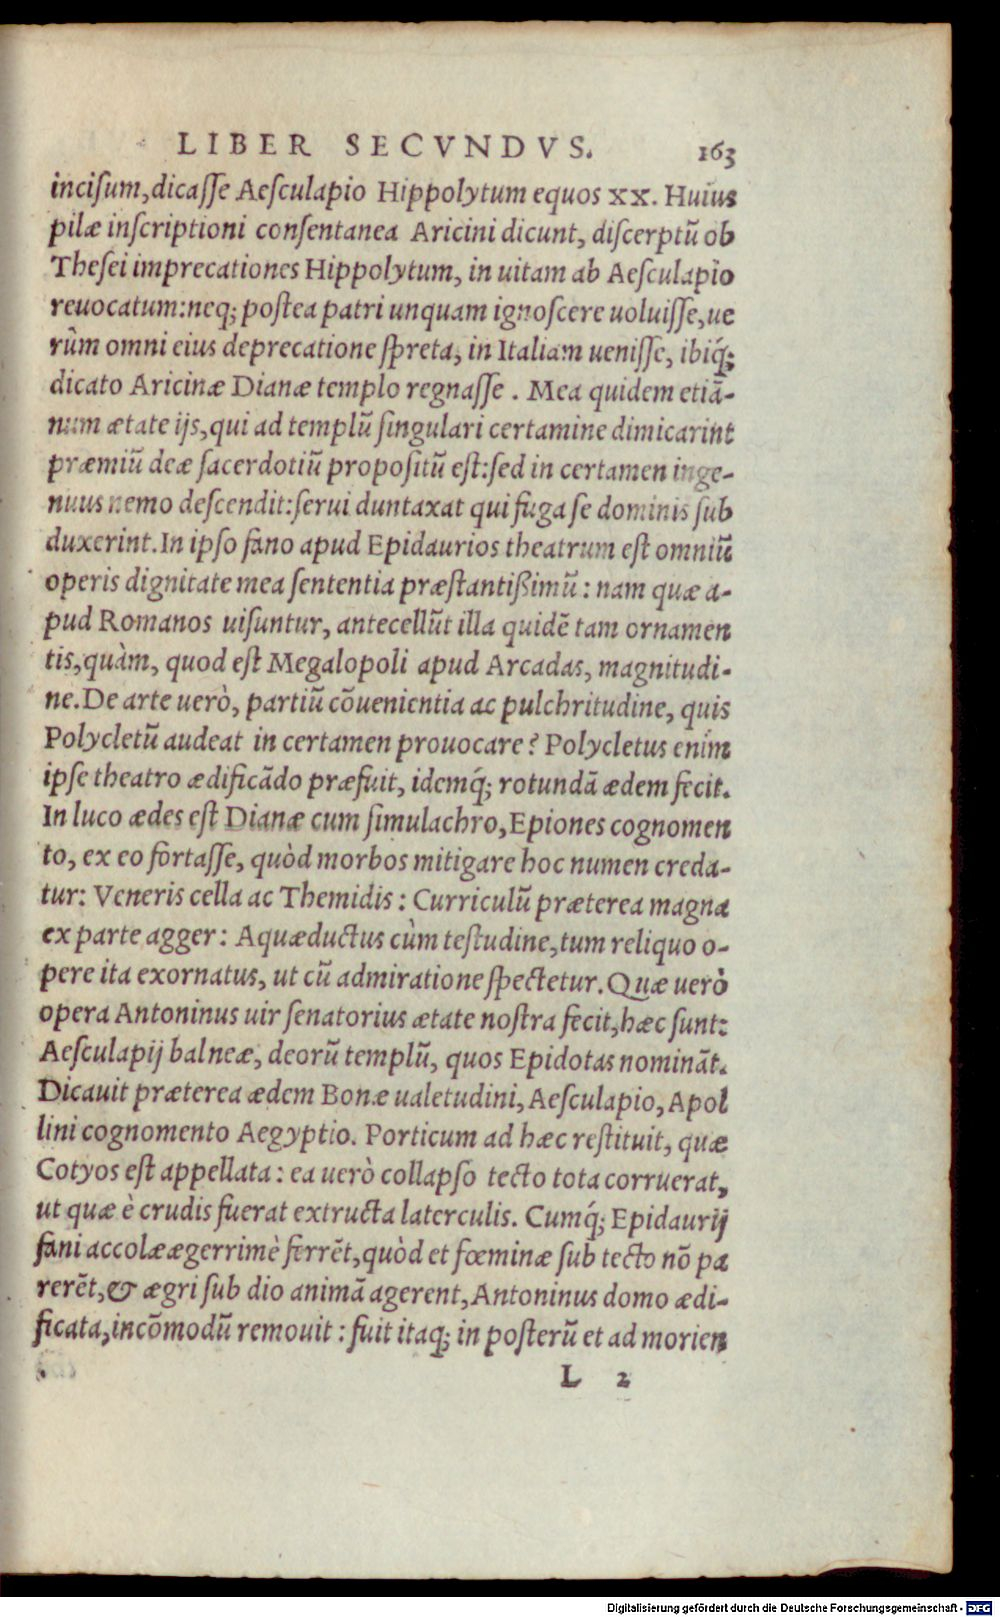 LIBER SECVNDVS. 163
incisum, dicasse Aesculapio Hippolytum equos XX. Huius
pilæ inscriptioni consentanea Aricini dicunt, discerptũ ob
Thesei imprecationes Hippolytum, in uitam ab Aesculapio
reuocatum: neq; postea patri unquam ignoscere uoluisse, ue
rùm omni eius deprecatione spreta, in Italiam uenisse, ibiq́;
dicato Aricinæ Dianæ templo regnasse. Mea quidem etiã-
num ætate ijs, qui ad templũ singulari certamine dimicarint
præmiũ deæ sacerdotiũ propositũ est: sed in certamen inge-
nuus nemo descendit: serui duntaxat qui fuga se dominis sub
duxerint. In ipso fano apud Epidaurios theatrum est omniũ
operis dignitate mea sententia præstantißimũ: nam quæ a-
pud Romanos uisuntur, antecellũt illa quidẽ tam ornamen
tis, quàm, quod est Megalopoli apud Arcadas, magnitudi-
ne. De arte uerò, partiũ cõuenientia ac pulchritudine, quis
Polycletũ audeat in certamen prouocare? Polycletus enim
ipse theatro ædificãdo præfuit, idemq́; rotundã ædem fecit.
In luco ædes est Dianæ cum simulachro, Epiones cognomen
to, ex eo fortasse, quòd morbos mitigare hoc numen creda-
tur: Veneris cella ac Themidis: Curriculũ præterea magna
ex parte agger: Aquæductus cùm testudine, tum reliquo o-
pere ita exornatus, ut cũ admiratione spectetur. Quæ uerò
opera Antoninus uir senatorius ætate nostra fecit, hæc sunt:
Aesculapij balneæ, deorũ templũ, quos Epidotas nominãt.
Dicauit præterea ædem Bonæ ualetudini, Aesculapio, Apol
lini cognomento Aegyptio. Porticum ad hæc restituit, quæ
Cotyos est appellata: ea uerò collapso tecto tota corruerat,
ut quæ è crudis fuerat extructa laterculis. Cumq́; Epidaurij
fani accolæ ægerrimè ferrẽt, quòd et fœminæ sub tecto nõ pa
rerẽt, & ægri sub dio animã agerent, Antoninus domo ædi-
ficata, incõmodũ remouit: fuit itaq; in posterũ et ad morien
L 2
Digitalisierung gefördert durch die Deutsche Forschungsgemeinschaft - DFG